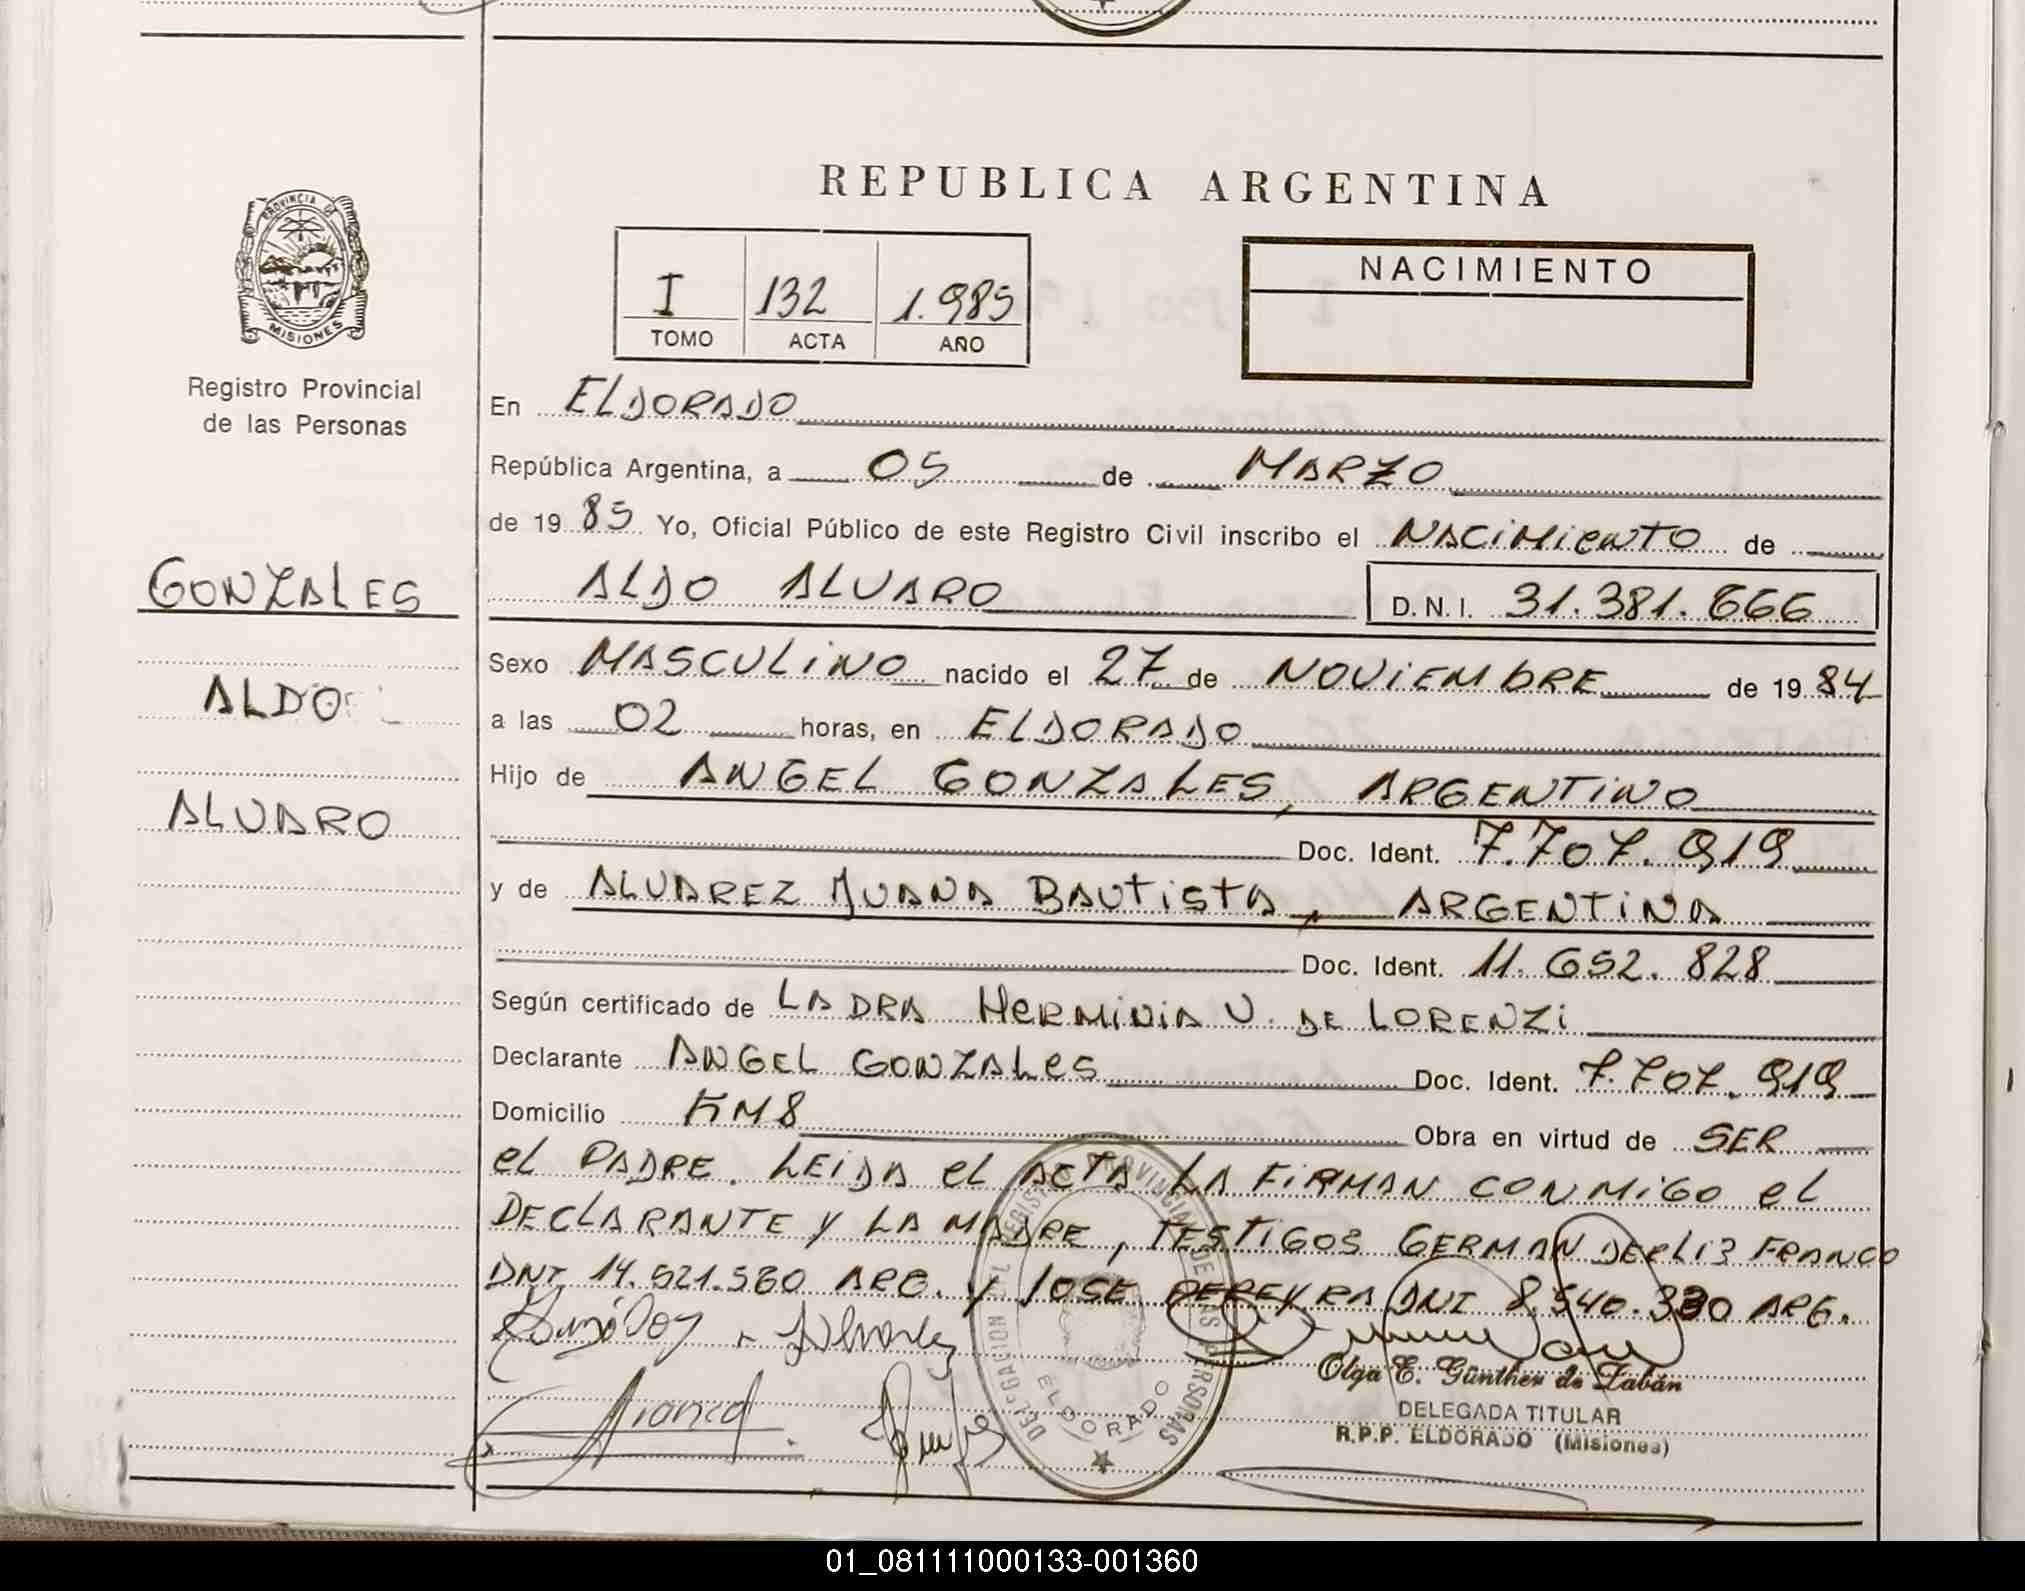 REPUBLICA ARGENTINA
PROVINCIA DE
MISIONES
Registro Provincial
de las Personas
I 132 1.985
TOMO ACTA AÑO
NACIMIENTO
En ELDORADO
República Argentina, a 05 de MARZO
de 19 85 Yo, Oficial Público de este Registro Civil inscribo el NACIMIENTO de
GONZALES
ALDO ALVARO D.N.I. 31.381.666
Sexo MASCULINO nacido el 27 de NOVIEMBRE de 19 84
ALDO
a las 02 horas, en ELDORADO
Hijo de ANGEL GONZALES, ARGENTINO
ALVARO
Doc. Ident. 7.707.919
y de ALVAREZ JUANA BAUTISTA, ARGENTINA
Doc. Ident. 11.652.828
Según certificado de LA DRA HERMINIA V. DE LORENZI
Declarante ANGEL GONZALES Doc. Ident. 7.707.919
Domicilio KM 8 Obra en virtud de SER
el PADRE. LEIDA el ACTA LA FIRMAN CONMIGO el
DECLARANTE Y LA MADRE, TESTIGOS GERMAN DERLIS FRANCO
DNI 14.521.560 ARG. Y JOSE PEREYRA DNI 8.540.330 ARG.
DELEGACION DEL REGISTRO PROVINCIAL DE LAS PERSONAS
ELDORADO
Olga E. Günther de Zabán
DELEGADA TITULAR
R.P.P. ELDORADO (Misiones)
01_081111000133-001360